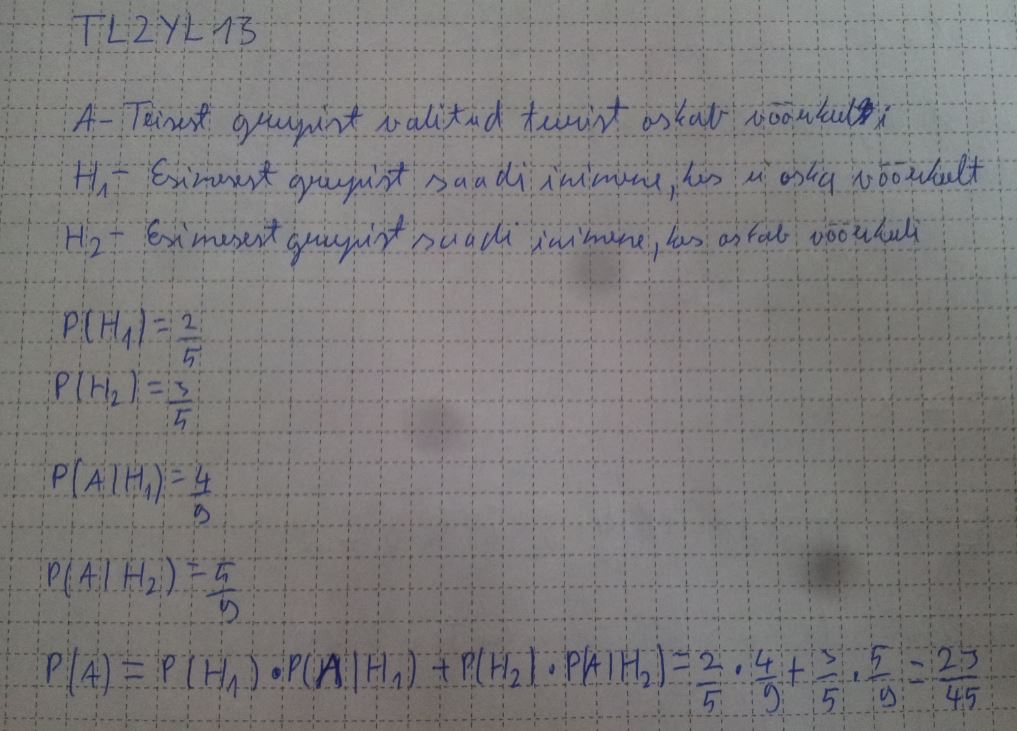 TL2YL13
A- Teisest grupist valitud turist oskab võõrkeeli
H₁- Esimesest grupist saadi inimene, kes ei oska võõrkeelt
H₂- Esimesest grupist saadi inimene, kes oskab võõrkeeli
P(H₁)=2/5
P(H₂)=3/5
P(A|H₁)=4/9
P(A|H₂)=5/9
P(A)=P(H₁)·P(A|H₁)+P(H₂)·P(A|H₂)=2/5·4/9+3/5·5/9=23/45